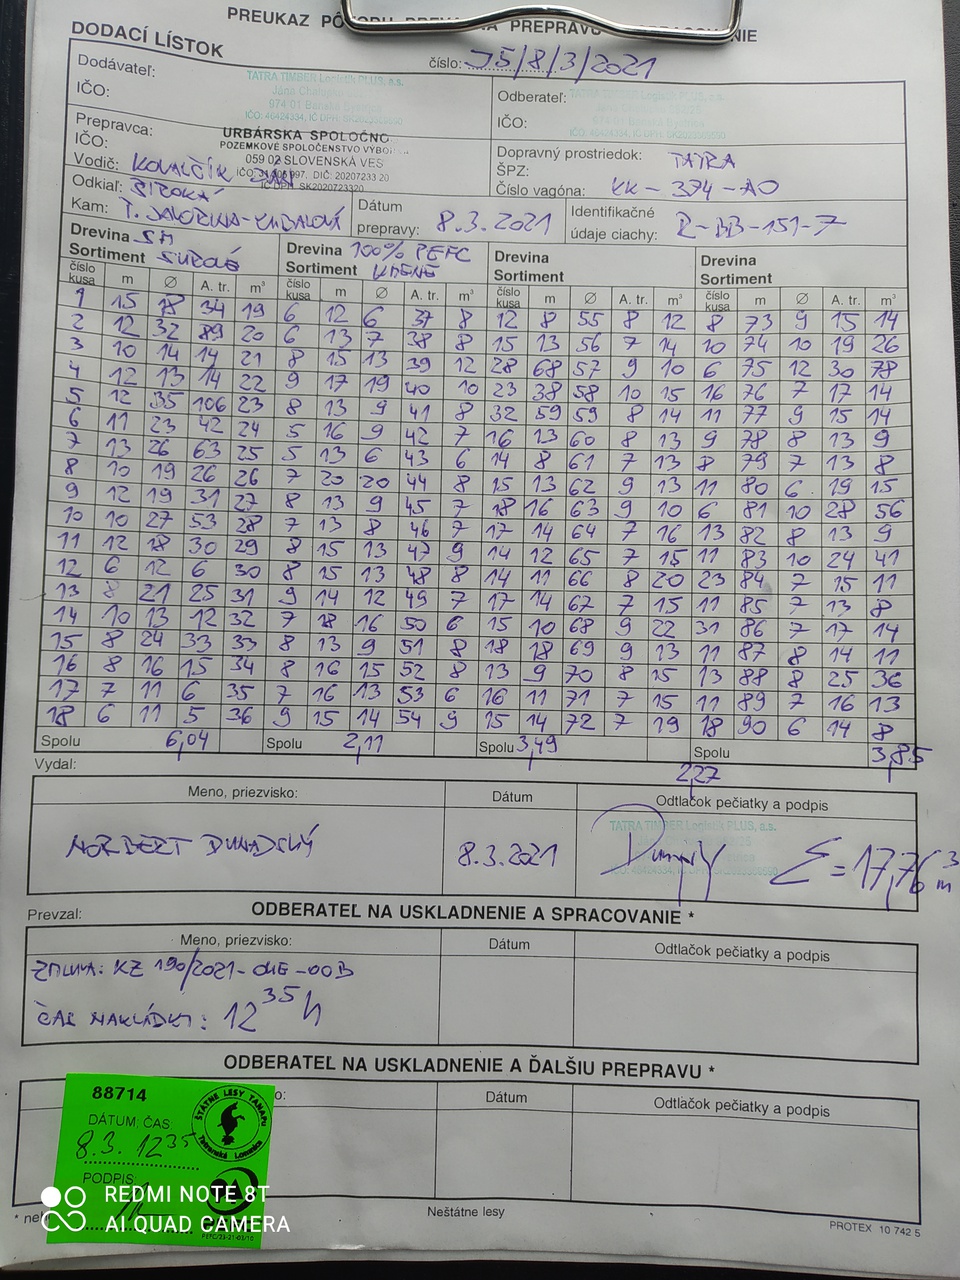 PREUKAZ PÔVODU DREVA NA PREPRAVU SPRACOVANIE
DODACÍ LÍSTOK
číslo: J5/8/3/2021
Dodávateľ:
TATRA TIMBER Logistik PLUS, a.s.
974 01 Banská Bystrica
IČO:
IČO: 46424334, IČ DPH:
Odberateľ:
TATRA TIMBER Logistik PLUS, a.s.
IČO:
Prepravca:
URBÁRSKA SPOLOČNO
POZEMKOVÉ SPOLOČENSTVO
IČO:
059 02 SLOVENSKÁ VES
Vodič: KOVALČÍK JÁN
DIČ: 20207233 20
IČ DPH: SK2020723320
Dopravný prostriedok: TATRA
ŠPZ:
Číslo vagóna: KK-374-AO
Odkiaľ: ŠIROKÁ
Kam: T. JAVORINA-
Dátum prepravy: 8.3.2021
Identifikačné údaje ciachy: R-BB-151-7
Drevina SM
Sortiment SUROVÉ
Drevina 100% PEFC
Sortiment
Drevina
Sortiment
Drevina
Sortiment
číslo kusa m Ø A. tr. m³ číslo kusa m Ø A. tr. m³ číslo kusa m Ø A. tr. m³ číslo kusa m Ø A. tr. m³
1 15 18 34 19 6 12 6 37 8 12 8 55 8 12 8 73 9 15 14
2 12 32 89 20 6 13 7 38 8 15 13 56 7 14 10 74 10 19 26
3 10 14 14 21 8 15 13 39 12 28 68 57 9 10 6 75 12 30 78
4 12 13 14 22 9 17 19 40 10 23 38 58 10 15 16 76 7 17 14
5 12 35 106 23 8 13 9 41 8 32 59 59 8 14 11 77 9 15 14
6 11 23 42 24 5 16 9 42 7 16 13 60 8 13 9 78 8 13 9
7 13 26 63 25 5 13 6 43 6 14 8 61 7 13 8 79 7 13 8
8 10 19 26 26 7 20 20 44 8 15 13 62 9 13 11 80 6 19 15
9 12 19 31 27 8 13 9 45 7 18 16 63 9 10 6 81 10 28 56
10 10 27 53 28 7 13 8 46 7 17 14 64 7 16 13 82 8 13 9
11 12 18 30 29 8 15 13 47 9 14 12 65 7 15 11 83 10 24 41
12 6 12 6 30 8 15 13 48 8 14 11 66 8 20 23 84 7 15 11
13 8 21 25 31 9 14 12 49 7 17 14 67 7 15 11 85 7 13 8
14 10 13 12 32 7 18 16 50 6 15 10 68 9 22 31 86 7 17 14
15 8 24 33 33 8 13 9 51 8 18 18 69 9 13 11 87 8 14 11
16 8 16 15 34 8 16 15 52 8 13 9 70 8 15 13 88 8 25 36
17 7 11 6 35 7 16 13 53 6 16 11 71 7 15 11 89 7 16 13
18 6 11 5 36 9 15 14 54 9 15 14 72 7 19 18 90 6 14 8
Spolu 6,04 Spolu 2,11 Spolu 3,49 Spolu 3,85
2,27
Vydal:
Meno, priezvisko: Dátum Odtlačok pečiatky a podpis
TATRA TIMBER Logistik PLUS, a.s.
NORBERT DUNADSKÝ 8.3.2021 Σ = 17,76 m³
Prevzal: ODBERATEĽ NA USKLADNENIE A SPRACOVANIE *
Meno, priezvisko: Dátum Odtlačok pečiatky a podpis
ZMLUVA: KZ 190/2021-OIE-00B
ČAS NAKLÁDKY: 12 35 h
ODBERATEĽ NA USKLADNENIE A ĎALŠIU PREPRAVU *
Dátum Odtlačok pečiatky a podpis
88714
ŠTÁTNE LESY TANAPU
Tatranská Lomnica
DÁTUM, ČAS
8.3. 12 35
PODPIS
PEFC/23-21-03/10
REDMI NOTE 8T
AI QUAD CAMERA
Neštátne lesy
PROTEX 10 742 5